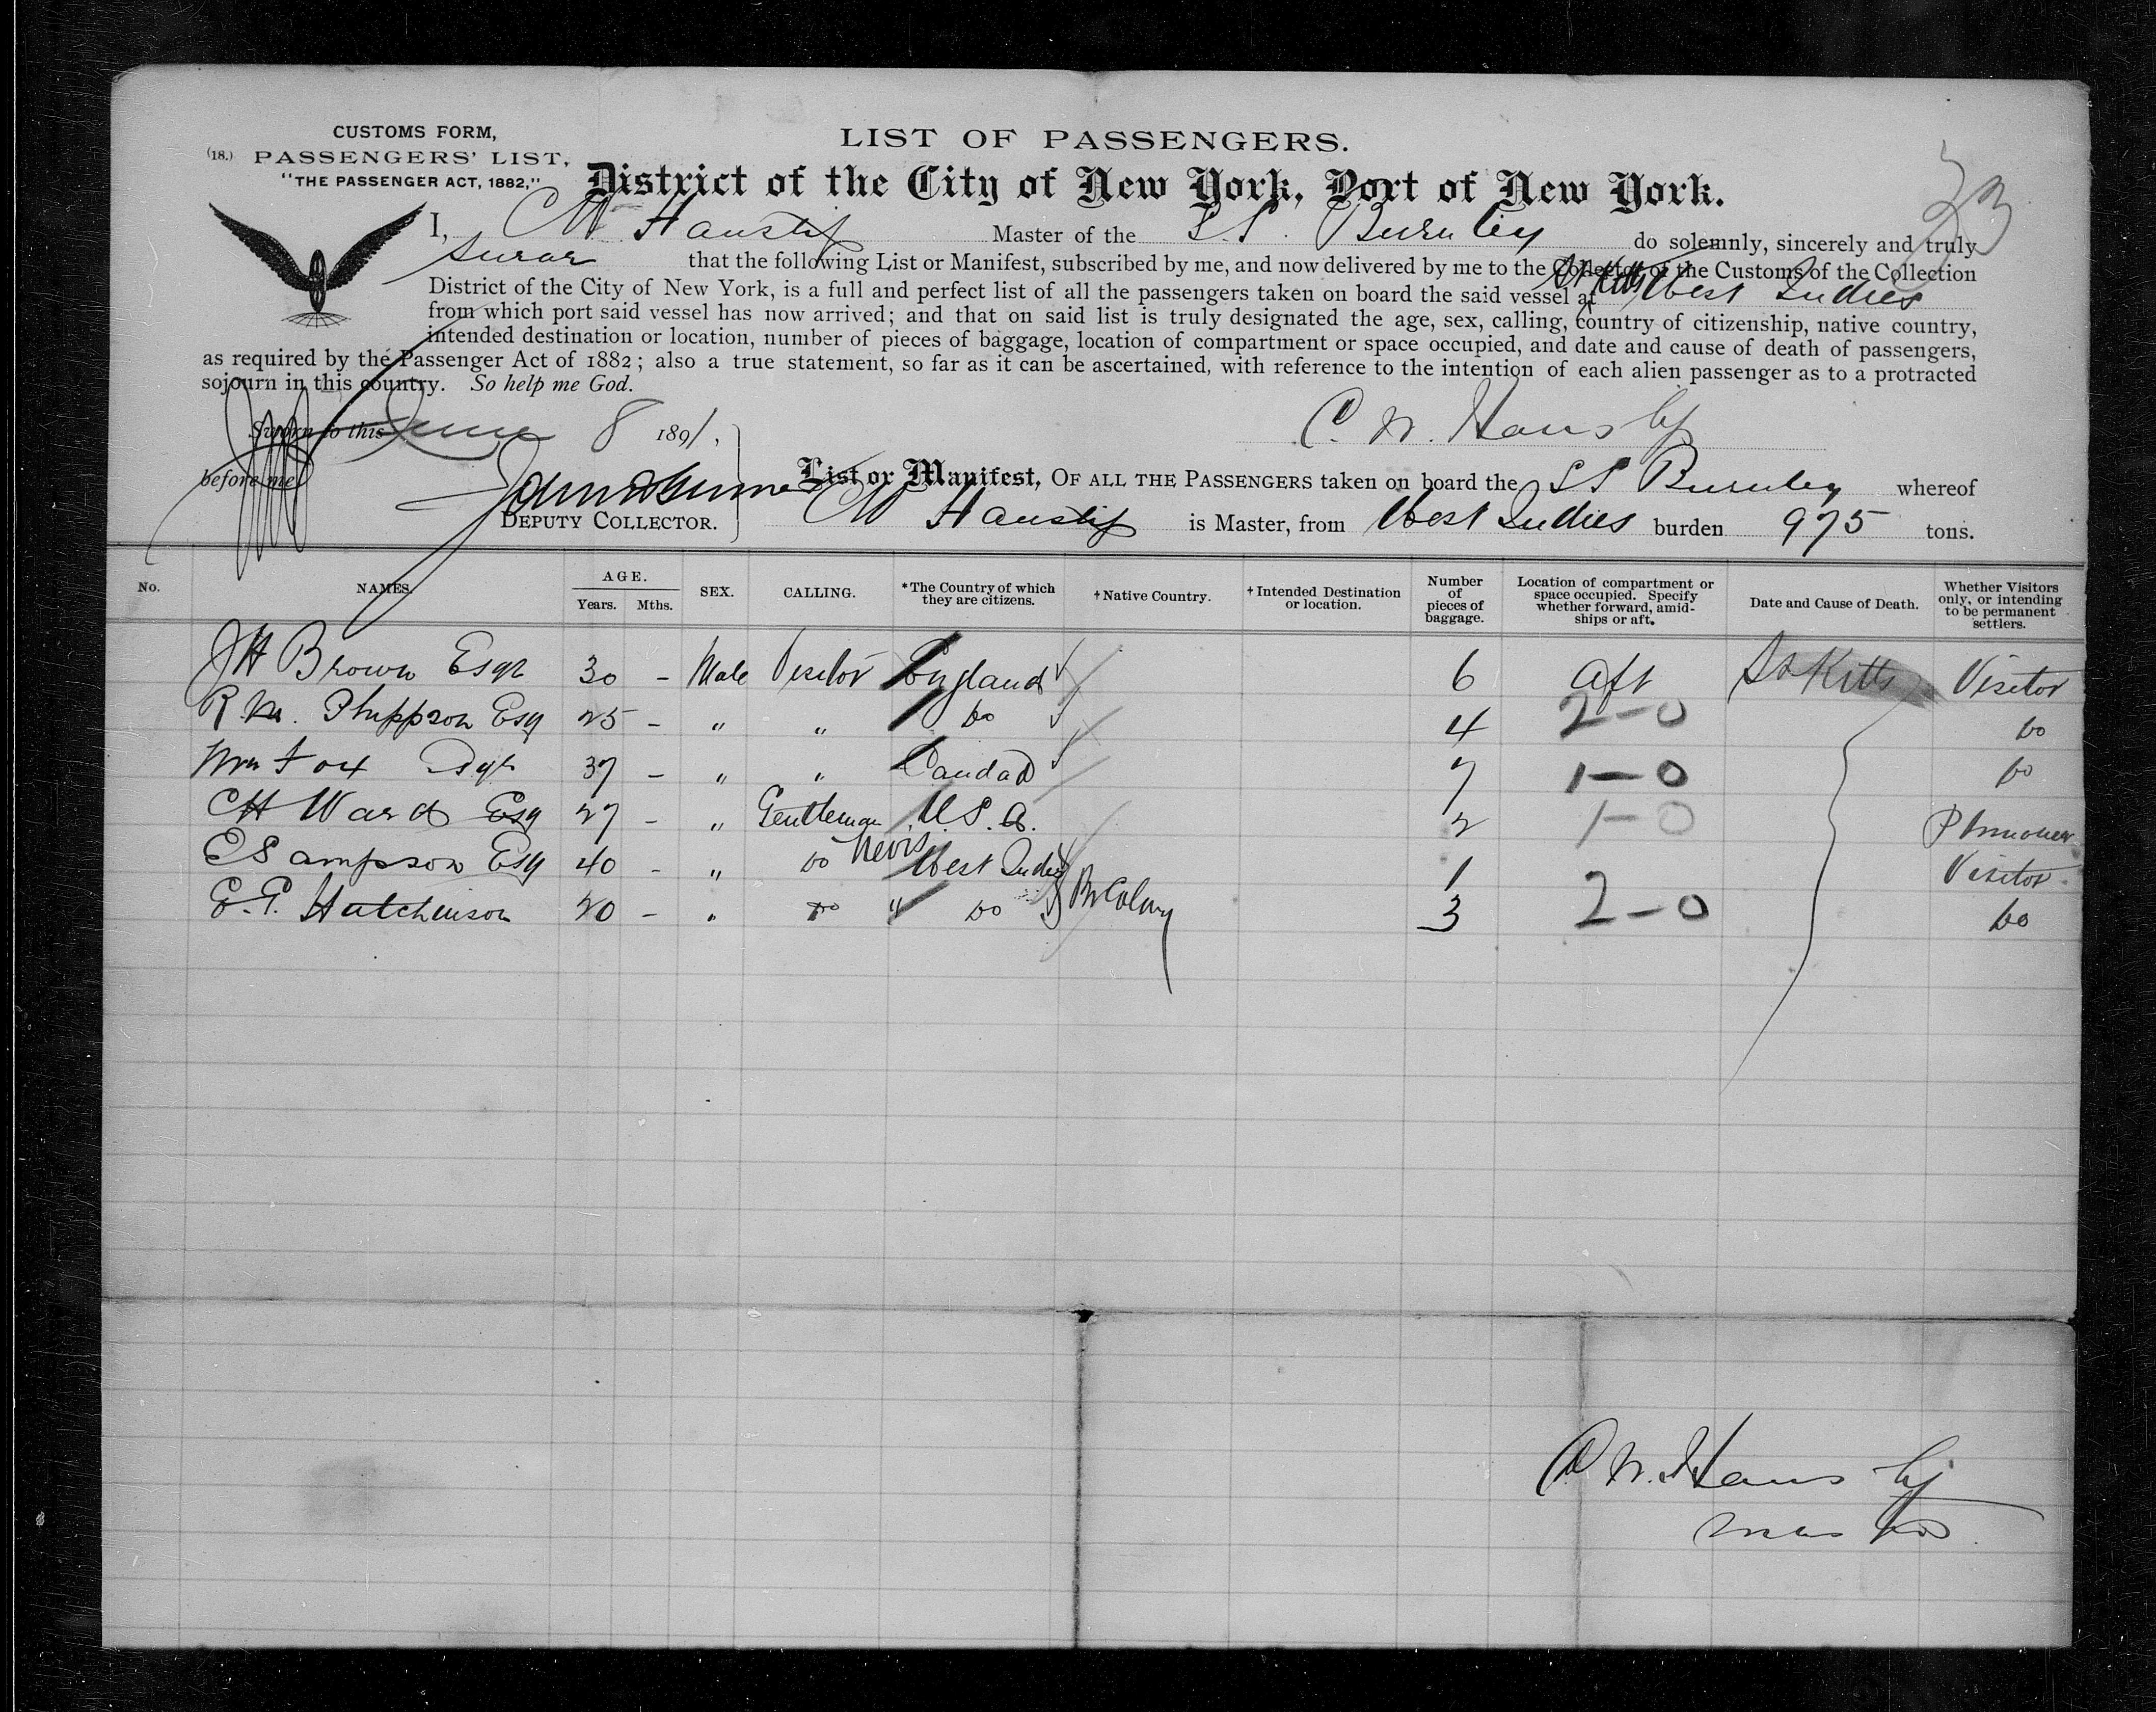 CUSTOMS FORM,
(18.) PASSENGERS' LIST,
"THE PASSENGER ACT, 1882,"
LIST OF PASSENGERS.
District of the City of New York, Port of New York.
33
I, CW Hansby Master of the S.S. Burnley do solemnly, sincerely and truly
swear that the following List or Manifest, subscribed by me, and now delivered by me to the Collector of the Customs of the Collection
District of the City of New York, is a full and perfect list of all the passengers taken on board the said vessel at St Kitts West Indies
from which port said vessel has now arrived; and that on said list is truly designated the age, sex, calling, country of citizenship, native country,
intended destination or location, number of pieces of baggage, location of compartment or space occupied, and date and cause of death of passengers,
as required by the Passenger Act of 1882; also a true statement, so far as it can be ascertained, with reference to the intention of each alien passenger as to a protracted
sojourn in this country. So help me God.
Sworn to this June 8 1891,
C. W. Hansby
before me
DEPUTY COLLECTOR.
List or Manifest, OF ALL THE PASSENGERS taken on board the SS Burnley whereof
CW Hansby is Master, from West Indies burden 975 tons.
No. NAMES. AGE. Years. Mths. SEX. CALLING. *The Country of which they are citizens. †Native Country. †Intended Destination or location. Number of pieces of baggage. Location of compartment or space occupied. Specify whether forward, amidships or aft. Date and Cause of Death. Whether Visitors only, or intending to be permanent settlers.
JH Brown Esqr 30 - Male Visitor England 6 Aft St Kitts Visitor
R. M. Phippson Esq 25 - " " Do 4 2-0 Do
Wm Fox Esqr 37 - " " Candad 7 1-0 Do
CH Ward Esq 27 - " Gentleman U.S.A. 2 1-0
E Sampson Esq 40 - " Do Nevis West Indies 1 Visitor
E. P. Hutchinson 20 - " Do " Do Br Colony 3 2-0 Do
C. W. Hansby
Master